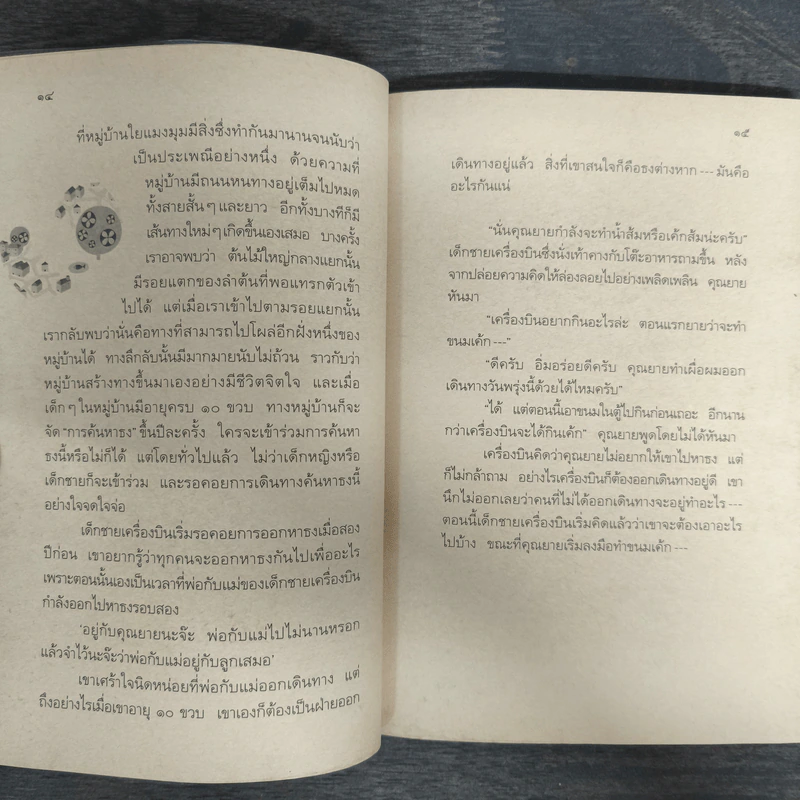 ๑๔
ที่หมู่บ้านใยแมงมุมมีสิ่งซึ่งทำกันมานานจนนับว่า
เป็นประเพณีอย่างหนึ่ง ด้วยความที่
หมู่บ้านมีถนนหนทางอยู่เต็มไปหมด
ทั้งสายสั้นๆและยาว อีกทั้งบางทีก็มี
เส้นทางใหม่ๆเกิดขึ้นเองเสมอ บางครั้ง
เราอาจพบว่า ต้นไม้ใหญ่กลางแยกนั้น
มีรอยแตกของลำต้นที่พอแทรกตัวเข้า
ไปได้ แต่เมื่อเราเข้าไปตามรอยแยกนั้น
เรากลับพบว่านั่นคือทางที่สามารถไปโผล่อีกฝั่งหนึ่งของ
หมู่บ้านได้ ทางลึกลับนั้นมีมากมายนับไม่ถ้วน ราวกับว่า
หมู่บ้านสร้างทางขึ้นมาเองอย่างมีชีวิตจิตใจ และเมื่อ
เด็กๆในหมู่บ้านมีอายุครบ ๑๐ ขวบ ทางหมู่บ้านก็จะ
จัด "การค้นหาธง" ขึ้นปีละครั้ง ใครจะเข้าร่วมการค้นหา
ธงนี้หรือไม่ก็ได้ แต่โดยทั่วไปแล้ว ไม่ว่าเด็กหญิงหรือ
เด็กชายก็จะเข้าร่วม และรอคอยการเดินทางค้นหาธงนี้
อย่างใจจดใจจ่อ
เด็กชายเครื่องบินเริ่มรอคอยการออกหาธงเมื่อสอง
ปีก่อน เขาอยากรู้ว่าทุกคนจะออกหาธงกันไปเพื่ออะไร
เพราะตอนนั้นเองเป็นเวลาที่พ่อกับแม่ของเด็กชายเครื่องบิน
กำลังออกไปหาธงรอบสอง
'อยู่กับคุณยายนะจ๊ะ พ่อกับแม่ไปไม่นานหรอก
แล้วจำไว้นะจ๊ะว่าพ่อกับแม่อยู่กับลูกเสมอ'
เขาเศร้าใจนิดหน่อยที่พ่อกับแม่ออกเดินทาง แต่
ถึงอย่างไรเมื่อเขาอายุ ๑๐ ขวบ เขาเองก็ต้องเป็นฝ่ายออก
๑๕
เดินทางอยู่แล้ว สิ่งที่เขาสนใจก็คือธงต่างหาก --- มันคือ
อะไรกันแน่
"นั่นคุณยายกำลังจะทำน้ำส้มหรือเค้กส้มน่ะครับ"
เด็กชายเครื่องบินซึ่งนั่งเท้าคางกับโต๊ะอาหารถามขึ้น หลัง
จากปล่อยความคิดให้ล่องลอยไปอย่างเพลิดเพลิน คุณยาย
หันมา
"เครื่องบินอยากกินอะไรล่ะ ตอนแรกยายว่าจะทำ
ขนมเค้ก---"
"ดีครับ อิ่มอร่อยดีครับ คุณยายทำเผื่อผมออก
เดินทางวันพรุ่งนี้ด้วยได้ไหมครับ"
"ได้ แต่ตอนนี้เอาขนมในตู้ไปกินก่อนเถอะ อีกนาน
กว่าเครื่องบินจะได้กินเค้ก" คุณยายพูดโดยไม่ได้หันมา
เครื่องบินคิดว่าคุณยายไม่อยากให้เขาไปหาธง แต่
ก็ไม่กล้าถาม อย่างไรเครื่องบินก็ต้องออกเดินทางอยู่ดี เขา
นึกไม่ออกเลยว่าคนที่ไม่ได้ออกเดินทางจะอยู่ทำอะไร ---
ตอนนี้เด็กชายเครื่องบินเริ่มคิดแล้วว่าเขาจะต้องเอาอะไร
ไปบ้าง ขณะที่คุณยายเริ่มลงมือทำขนมเค้ก ---